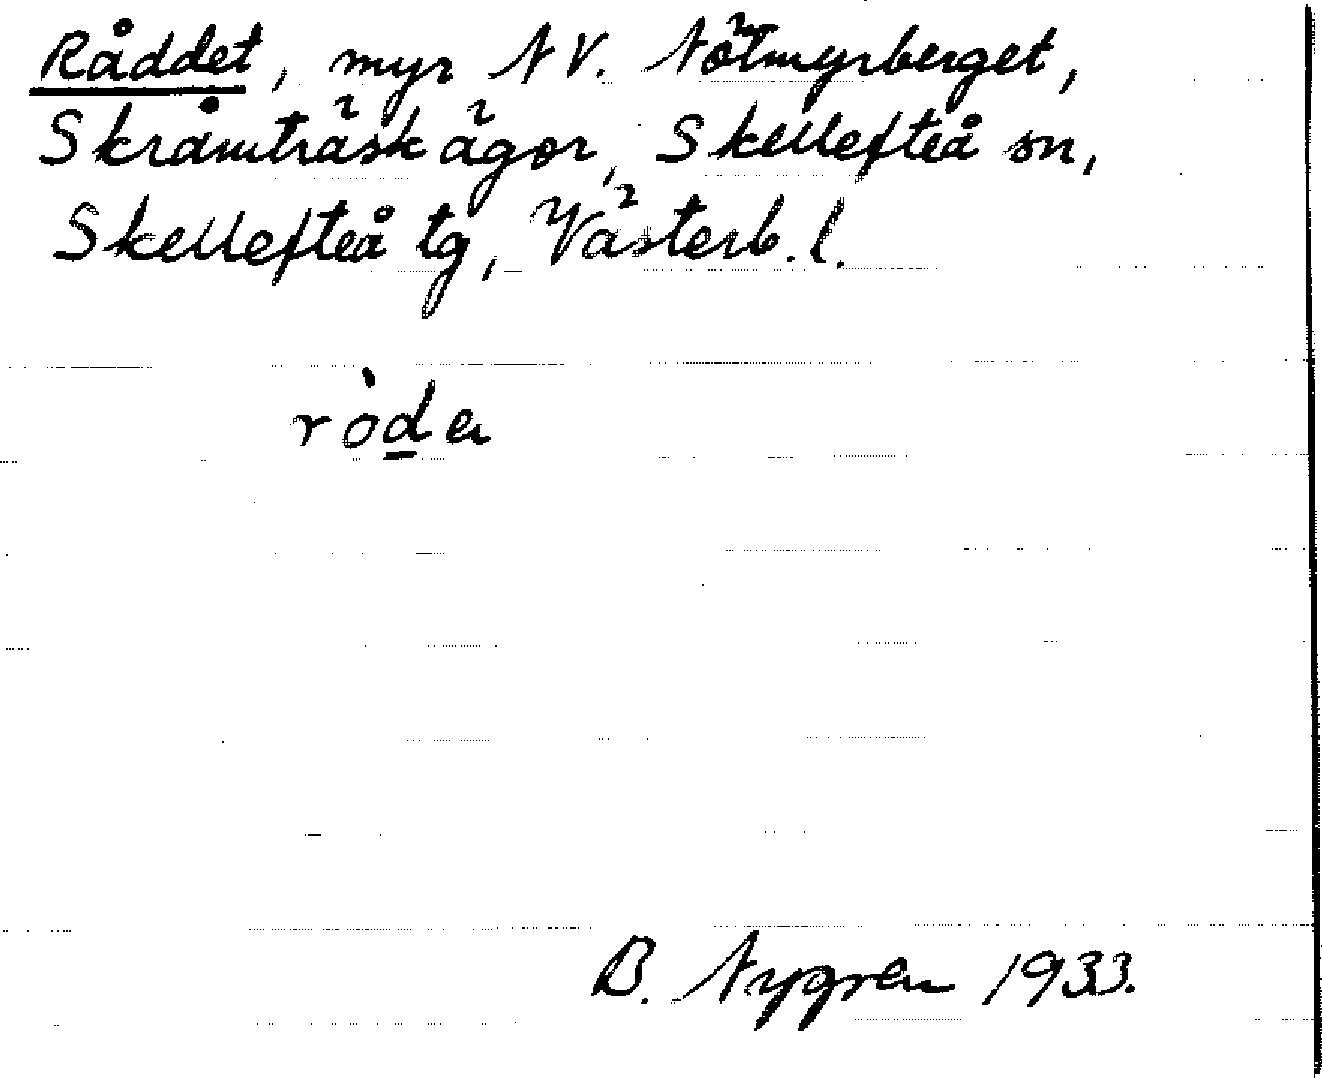 Råddet, myr NV. Nötmyrberget,
Skråmträsk ägor, Skellefteå sn,
Skellefteå tg, Västerb. l.
ròde
B. Nygren 1933.